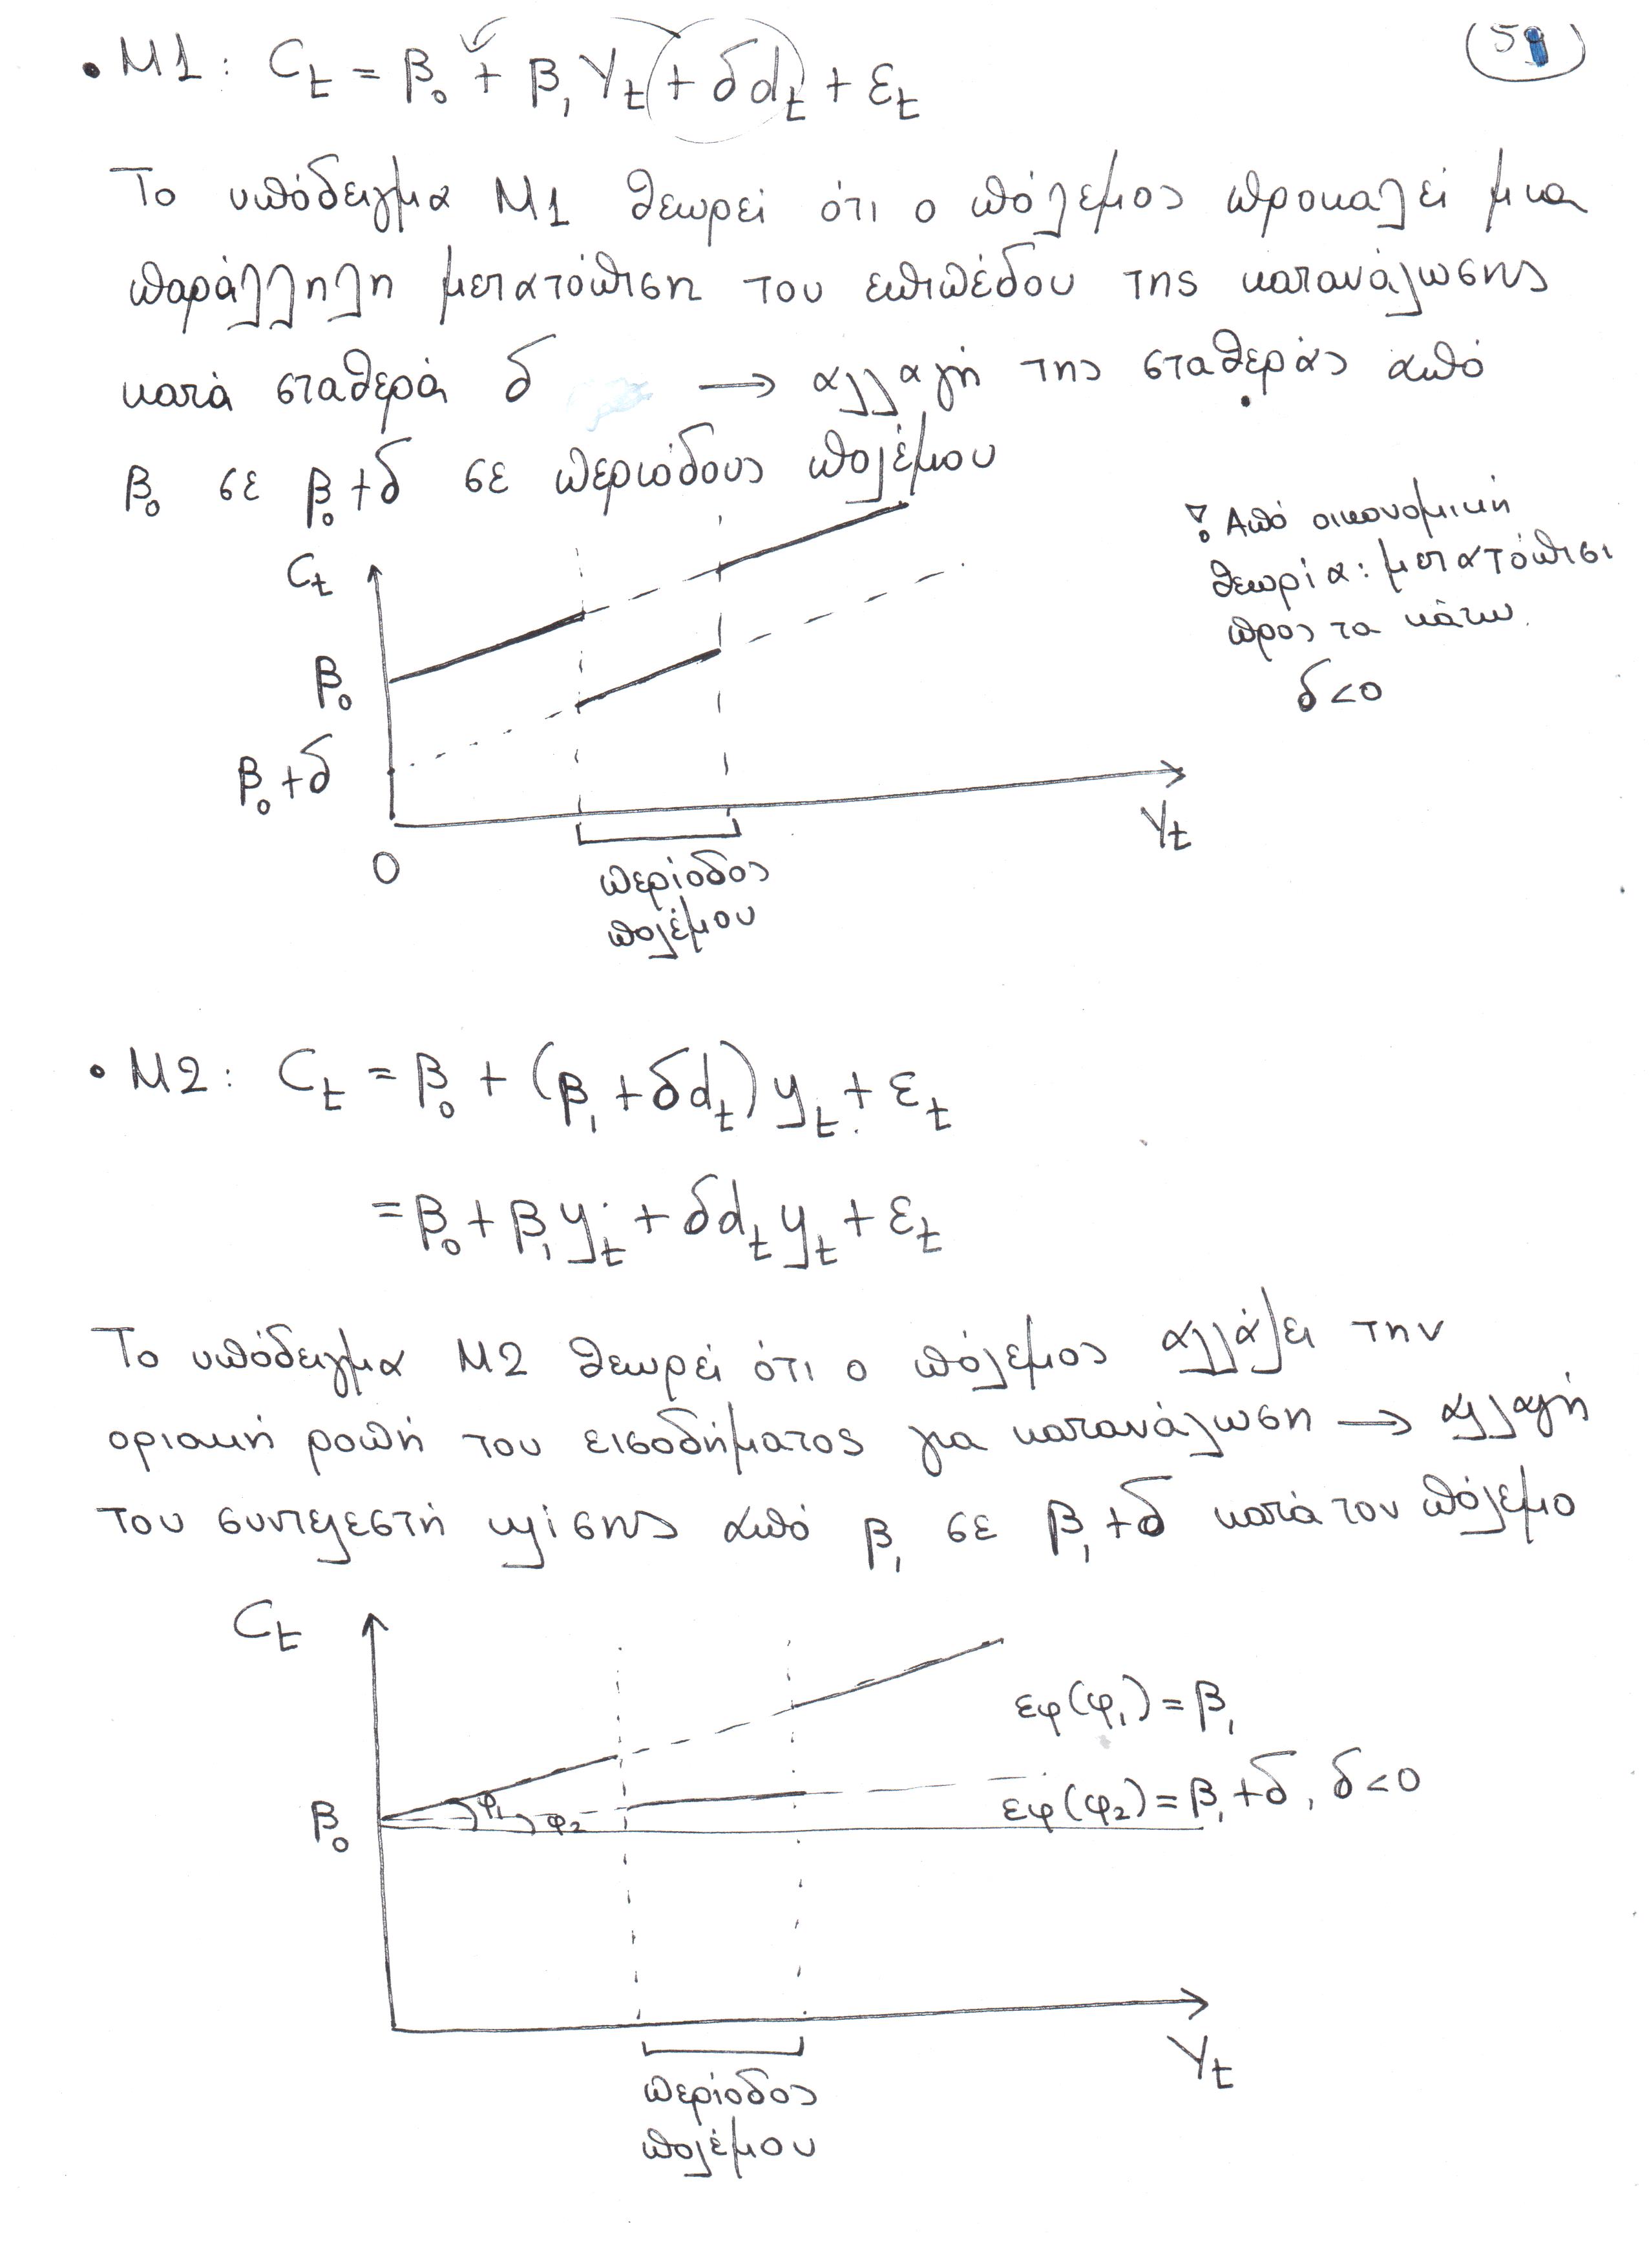 51
• M1: C_t = β_0 + β_1 Y_t + δd_t + ε_t
Το υπόδειγμα M1 θεωρεί ότι ο πόλεμος προκαλεί μια
παράλληλη μετατόπιση του επιπέδου της κατανάλωσης
κατά σταθερά δ → αλλαγή της σταθεράς από
β_0 σε β_0+δ σε περιόδους πολέμου
! Από οικονομική
θεωρία: μετατόπιση
προς τα κάτω.
δ<0
C_t
β_0
β_0+δ
0
Y_t
περίοδος
πολέμου
• M2: C_t = β_0 + (β_1 + δd_t) y_t + ε_t
= β_0 + β_1 y_t + δd_t y_t + ε_t
Το υπόδειγμα M2 θεωρεί ότι ο πόλεμος αλλάζει την
οριακή ροπή του εισοδήματος για κατανάλωση → αλλαγή
του συντελεστή κλίσης από β_1 σε β_1+δ κατά τον πόλεμο
C_t
εφ(φ_1) = β_1
φ_1
εφ(φ_2) = β_1+δ, δ<0
β_0
φ_2
Y_t
περίοδος
πολέμου